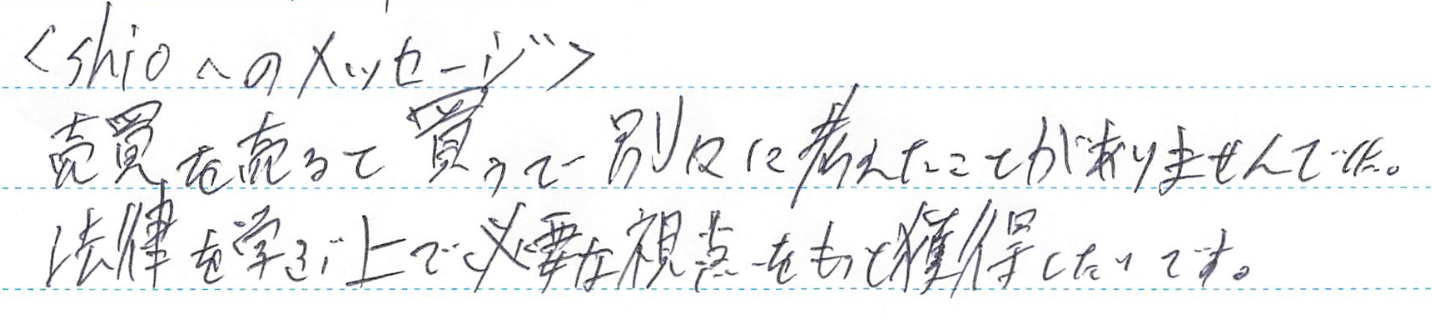 <shioへのメッセージ>
売買を売ると買うで別々に考えたことがありませんでした。
法律を学ぶ上で必要な視点をもっと獲得したいです。